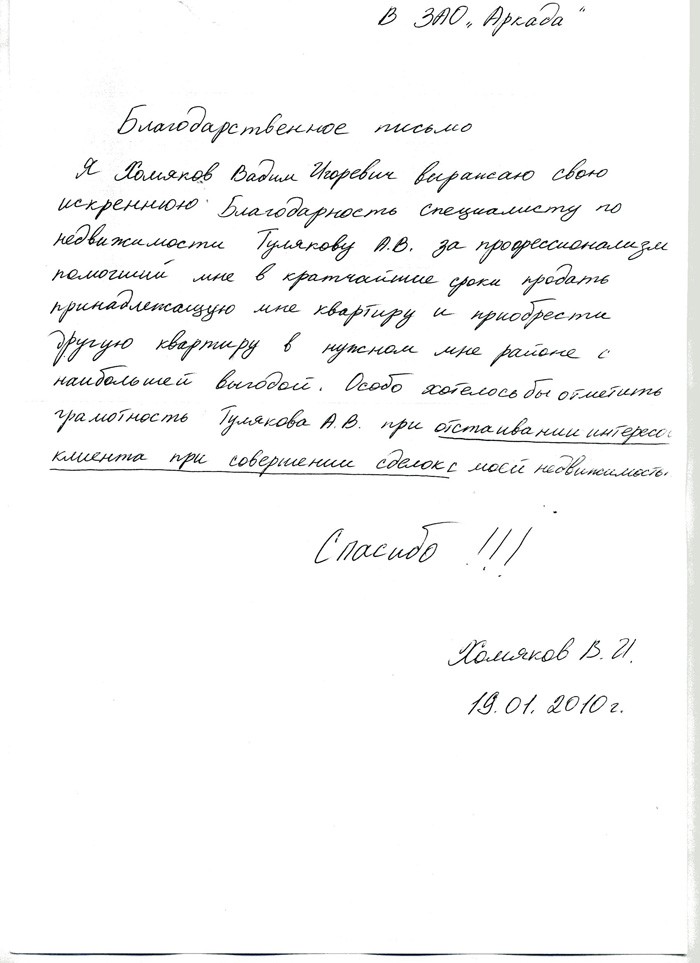 В ЗАО „Аркада"
Благодарственное письмо
Я Хомяков Вадим Игоревич выражаю свою
искреннюю Благодарность специалисту по
недвижимости Тулякову А.В. за профессионализм
помогший мне в кратчайшие сроки продать
принадлежащую мне квартиру и приобрести
другую квартиру в нужном мне районе с
наибольшей выгодой. Особо хотелось бы отметить
грамотность Тулякова А.В. при отстаивании интересо
клиента при совершении сделок с моей недвижимость.
Спасибо !!!
Хомяков В. И.
19.01.2010г.